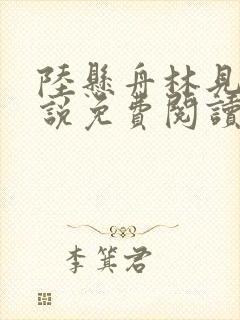 陸懸舟林見
說免費閱讀
李箕君